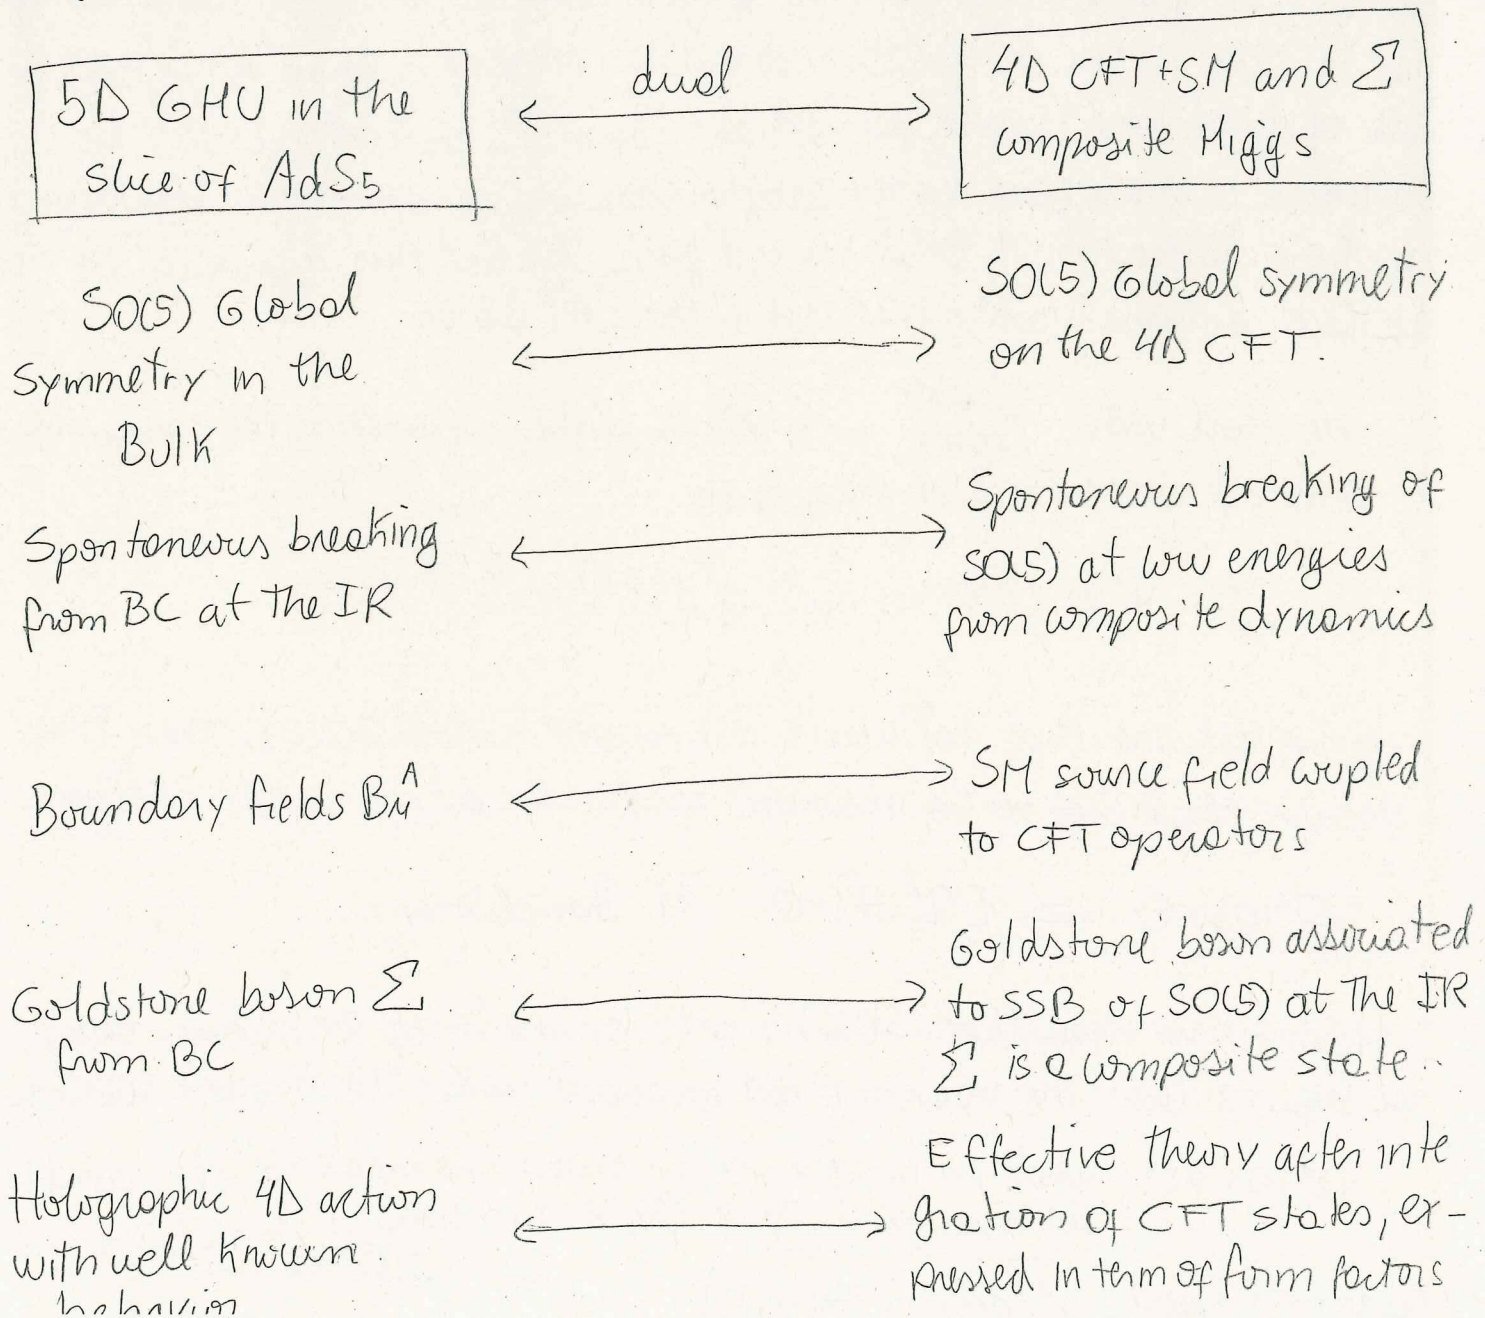 5D GHU in the
slice of AdS5
dual
4D CFT+SM and Σ
composite Higgs
SO(5) Global
Symmetry in the
Bulk
SO(5) Global symmetry
on the 4D CFT.
Spontaneous breaking
from BC at the IR
Spontaneous breaking of
SO(5) at low energies
from composite dynamics
Boundary fields Bμ^A
SM source field coupled
to CFT operators
Goldstone boson Σ
from BC
Goldstone boson associated
to SSB of SO(5) at the IR
Σ is a composite state..
Holographic 4D action
with well known
behavior
Effective theory after inte
gration of CFT states, ex-
pressed in term of form factors